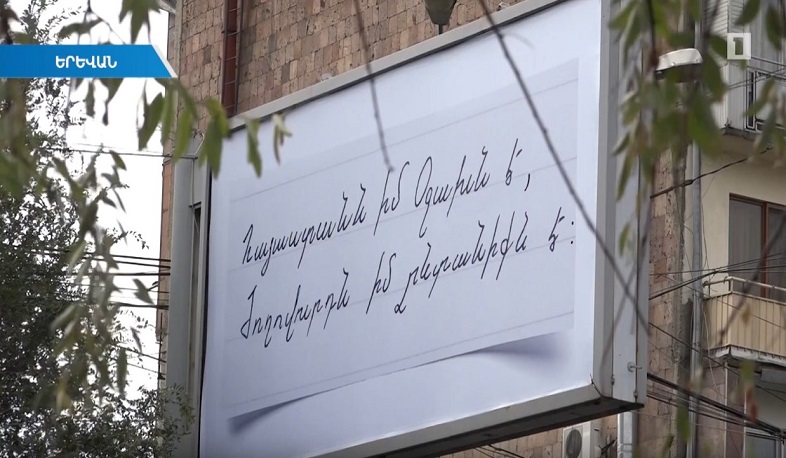 ԵՐԵՎԱՆ
1
Հայաստանն իմ Օջախն է,
Ժողովուրդն իմ ընտանիքն է: